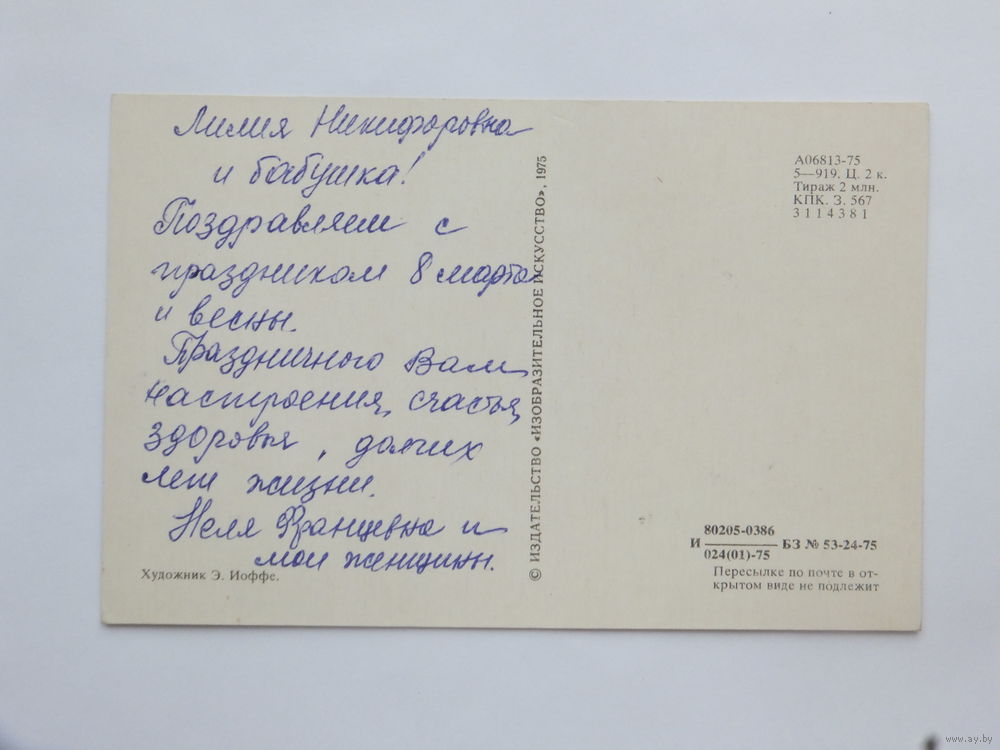 Лилия Никифоровна
и бабушка!
Поздравляем с
праздником 8 марта
и весны.
Праздничного Вам
настроения, счастья,
здоровья, долгих
лет жизни.
Неля Францевна и
мои женщины.
Художник Э. Иоффе.
© ИЗДАТЕЛЬСТВО «ИЗОБРАЗИТЕЛЬНОЕ ИСКУССТВО», 1975
А06813-75
5—919. Ц. 2 к.
Тираж 2 млн.
КПК. З. 567
3114381
80205-0386
И ——— БЗ № 53-24-75
024(01)-75
Пересылке по почте в от-
крытом виде не подлежит
www.ay.by